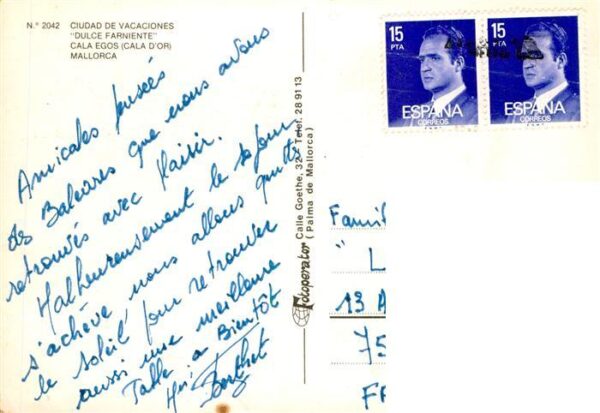 N.º 2042 CIUDAD DE VACACIONES
"DULCE FARNIENTE"
CALA EGOS (CALA D'OR)
MALLORCA
Amicales pensées
des Baléares que nous avons
retrouvés avec plaisir.
Malheureusement le séjour
s'achève nous allons quitter
le soleil pour retrouver
aussi une meilleure
Table a Bientôt
Fotoperator Calle Goethe, 32 - Telef. 28 91 13
(Palma de Mallorca)
15
PTA
ESPAÑA
CORREOS
15
PTA
ESPAÑA
CORREOS
Famil
" L
13 A
75
FR